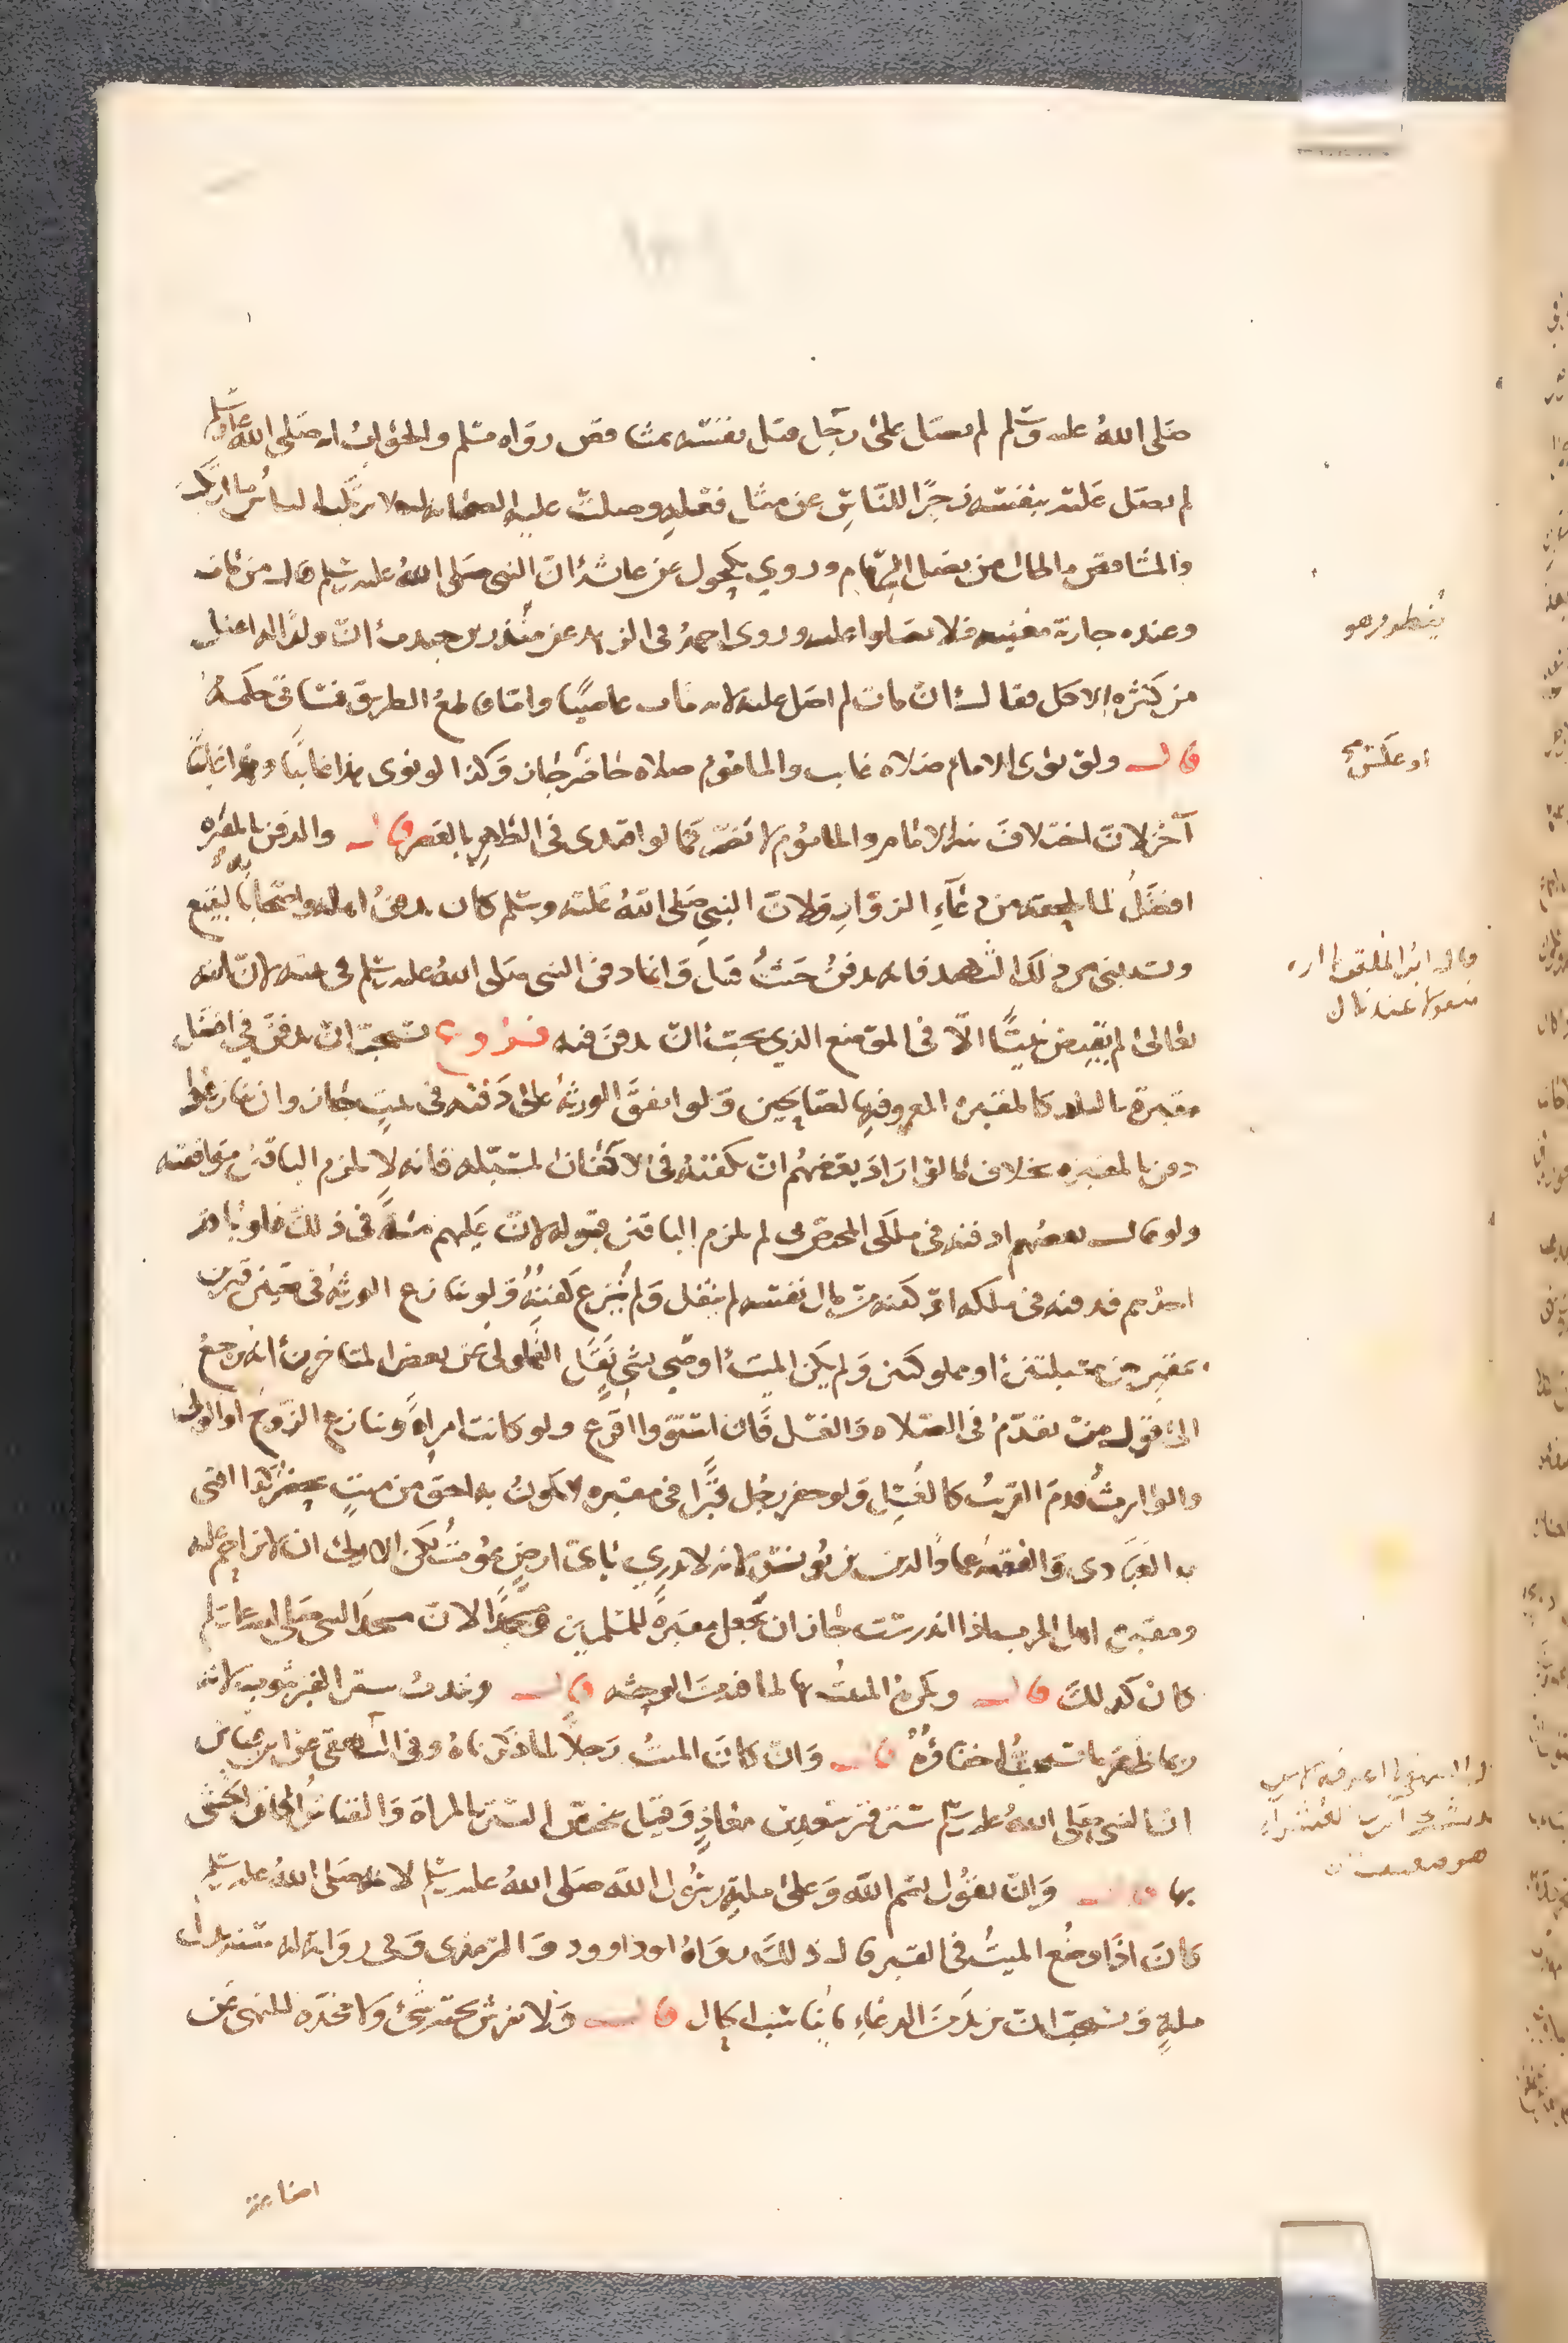 صلى الله عليه وسلم لم يصل على رجل قتل نفسه بمشاقص رواه مسلم والجواب انه صلى الله عليه وسلم
لم يصل عليه بنفسه زجرا للناس عن مثل فعله وصلت عليه الصحابة
والمشاقص وروى مكحول عن عائشة ان النبي صلى الله عليه وسلم قال من مات
وعنده جارية مغنية فلا تصلوا عليه وروى احمد في الزهد عن ان ولدا له اعتل
من كثرة الاكل فقال ان مات لم اصل عليه لانه مات عاصيا واما قاطع الطريق فسيأتي حكمه
قال ولو نوى الامام صلاة غايب والماموم صلاة حاضر جاز وكذا لو نوى هذا غايبا وهذا غايبا
آخر لان اختلاف نية الامام والماموم لا تضر كما لو اقتدى في الظهر بالعصر قال والدفن بالمقبرة
افضل لما يلحقه من دعاء الزوار ولان النبي صلى الله عليه وسلم كان يدفن اهله واصحابه بالبقيع
ويستثنى من ذلك الشهيد فانه يدفن حيث قتل وانما دفن النبي صلى الله عليه وسلم في بيته لان الله
تعالى لم يقبض نبيا الا في الموضع الذي يحب ان يدفن فيه فروع يستحب ان يدفن في افضل
مقبرة بالبلد كالمقبرة المعروفة بالصالحين ولو اتفق الورثة على دفنه في بيت جاز وان تنازعوا
دفن بالمقبرة بخلاف ما لو اراد بعضهم ان يكفنه في الاكفان المسبلة فانه لا يلزم الباقين موافقته
ولو قال بعضهم ادفنه في ملكي المختص بي لم يلزم الباقين قبوله لان عليهم منة في ذلك فلو بادر
احدهم فدفنه في ملكه او كفنه من مال نفسه لم ينقل ولم ينزع كفنه ولو تنازع الورثة في
مقبرتين مسبلتين او مملوكتين ولم يكن الميت اوصى بشيء نقل القمولي عن بعض المتاخرين انه يرجع
الى قول من يقدم في الصلاة والغسل فان استووا اقرع ولو كانت امراة وتنازع الزوج او
والوارث قدم القريب كالغسل ولو حفر رجل قبرا في مقبرة لا يكون به احق من ميت يحضر كذا افتى
به العبادي والفقيه عماد الدين بن يونس لانه لا يدري باي ارض يموت لكن الاولى ان لا يزاحم عليه
ومقبرة اهل الحرب اذا اندرست جاز ان تجعل مقبرة للمسلمين ومسجدا لان مسجد النبي صلى الله عليه وسلم
كان كذلك قال ويكره المبيت بها لما فيه من الوحشة قال ويندب ستر القبر بثوب لانه
ربما ظهر ما يستحب اخفاؤه قال وان كان الميت رجلا لما ذكرناه وفي البيهقي عن ابن عباس
ان النبي صلى الله عليه وسلم ستر قبر سعد بن معاذ وقيل يختص الستر بالمراة والقياس الحاق الخنثى
بها قال وان يقول بسم الله وعلى ملة رسول الله صلى الله عليه وسلم لانه صلى الله عليه وسلم
كان اذا وضع الميت في القبر قال ذلك رواه ابو داوود والترمذي وفي رواية له سنة بدل
ملة ويستحب ان يزيد من الدعاء ما يناسب الحال قال ولا يفرش تحته شيء ولا مخدة للنهي عن
اضاعة
او عكسه